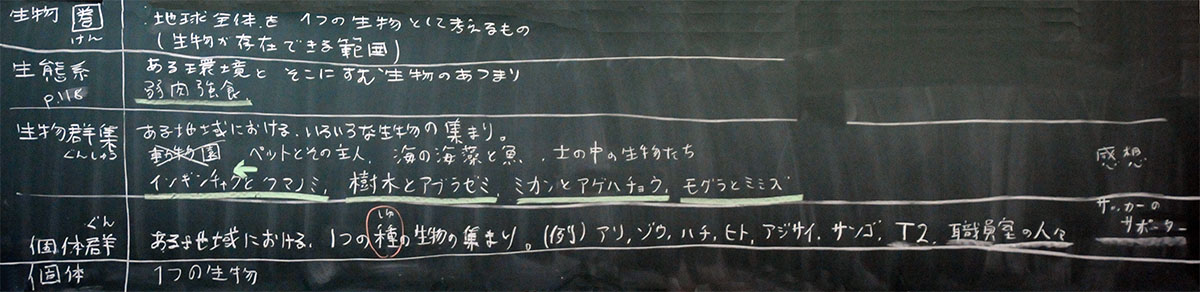 生物圏 地球全体を 1つの生物として考えるもの
けん (生物が存在できる範囲)
生態系 ある環境と そこにすむ生物のあつまり
p.118 弱肉強食
生物群集 ある地域における、いろいろな生物の集まり。
ぐんしゅう 動物園 ペットとその主人、海の海藻と魚、土の中の生物たち
イソギンチャクとクマノミ、樹木とアブラゼミ、ミカンとアゲハチョウ、モグラとミミズ
感想
ぐん しゅ
個体群 ある地域における、1つの種の生物の集まり。(例) アリ、ゾウ、ハチ、ヒト、アジサイ、サンゴ、T2、職員室の人々
サッカーの
サポーター
個体 1つの生物